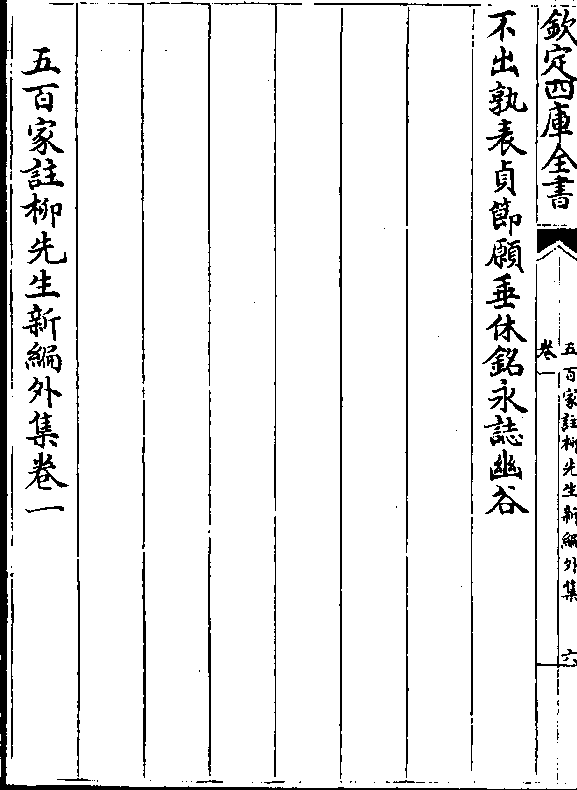 欽定四庫全書
五百家註柳先生新編外集
卷一
六
不出孰表貞節願垂休銘永誌幽谷
五百家註柳先生新編外集卷一